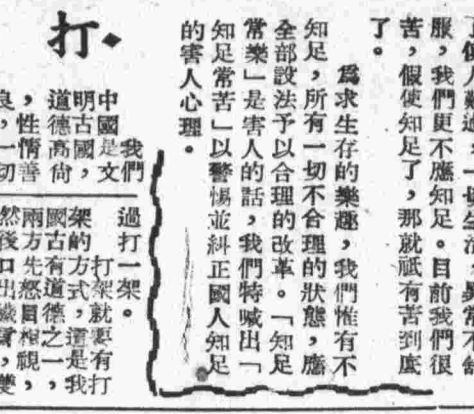 異常不舒
服，我們更不應知足。目前我們很
苦，假使知足了，那就祇有苦到底
了。
爲求生存的樂趣，我們惟有不
知足，所有一切不合理的狀態，應
全部設法予以合理的改革。「知足
常樂」是害人的話，我們特喊出「
知足常苦」以警惕並糾正國人知足
的害人心理。
打
我們
中國是文
明古國，
道德高尚
，性情善
良，一切
過打一架。
打架就要有打
架的方式，這是我
國古有道德之一，
兩方先怒目相視，
然後口出